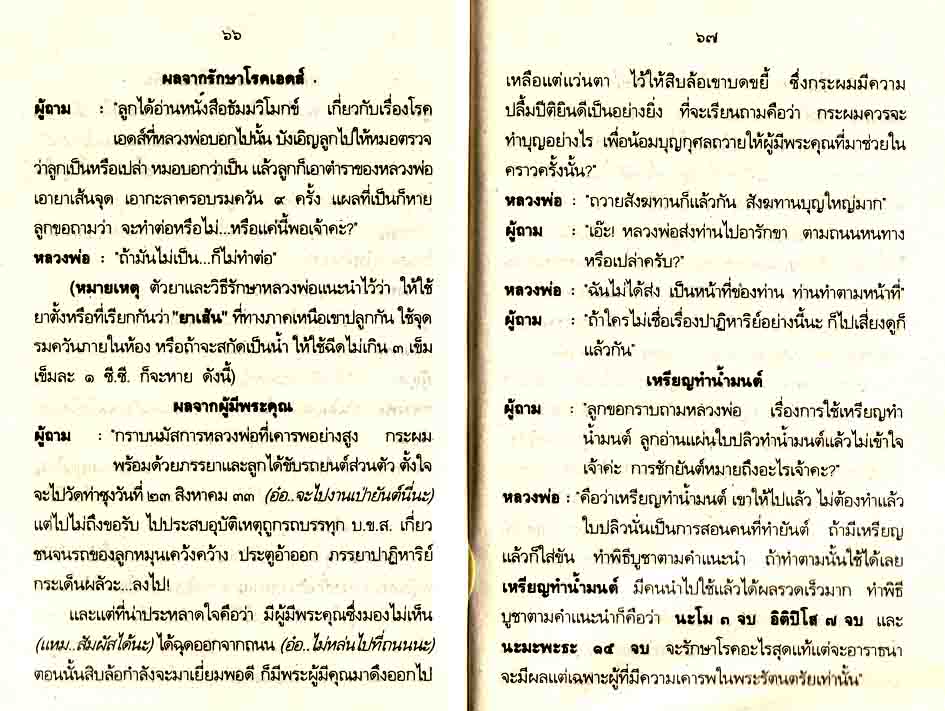 ๖๖
ผลจากรักษาโรคเอดส์
ผู้ถาม : "ลูกได้อ่านหนังสือธัมมวิโมกข์ เกี่ยวกับเรื่องโรค
เอดส์ที่หลวงพ่อบอกไปนั้น บังเอิญลูกไปให้หมอตรวจ
ว่าลูกเป็นหรือเปล่า หมอบอกว่าเป็น แล้วลูกก็เอาตำราของหลวงพ่อ
เอายาเส้นจุด เอากะลาครอบรมควัน ๙ ครั้ง แผลที่เป็นก็หาย
ลูกขอถามว่า จะทำต่อหรือไม่...หรือแค่นี้พอเจ้าคะ?"
หลวงพ่อ : "ถ้ามันไม่เป็น...ก็ไม่ทำต่อ"
(หมายเหตุ ตัวยาและวิธีรักษาหลวงพ่อแนะนำไว้ว่า ให้ใช้
ยาตั้งหรือที่เรียกกันว่า "ยาเส้น" ที่ทางภาคเหนือเขาปลูกกัน ใช้จุด
รมควันภายในห้อง หรือถ้าจะสกัดเป็นน้ำ ให้ใช้ฉีดไม่เกิน ๓ เข็ม
เข็มละ ๑ ซี.ซี. ก็จะหาย ดังนี้)
ผลจากผู้มีพระคุณ
ผู้ถาม : "กราบนมัสการหลวงพ่อที่เคารพอย่างสูง กระผม
พร้อมด้วยภรรยาและลูกได้ขับรถยนต์ส่วนตัว ตั้งใจ
จะไปวัดท่าซุงวันที่ ๒๓ สิงหาคม ๓๓ (อ๋อ..จะไปงานเป่ายันต์นี่นะ)
แต่ไปไม่ถึงขอรับ ไปประสบอุบัติเหตุถูกรถบรรทุก บ.ข.ส. เกี่ยว
ชนจนรถของลูกหมุนเคว้งคว้าง ประตูอ้าออก ภรรยาปาฏิหาริย์
กระเด็นผลัวะ...ลงไป!
และแต่ที่น่าประหลาดใจคือว่า มีผู้มีพระคุณซึ่งมองไม่เห็น
(แหม..สัมผัสได้นะ) ได้ฉุดออกจากถนน (อ๋อ..ไม่หล่นไปที่ถนนนะ)
ตอนนั้นสิบล้อกำลังจะมาเยี่ยมพอดี ก็มีพระผู้มีคุณมาดึงออกไป
๖๗
เหลือแต่แว่นตา ไว้ให้สิบล้อเขาบดขยี้ ซึ่งกระผมมีความ
ปลื้มปีติยินดีเป็นอย่างยิ่ง ที่จะเรียนถามคือว่า กระผมควรจะ
ทำบุญอย่างไร เพื่อน้อมบุญกุศลถวายให้ผู้มีพระคุณที่มาช่วยใน
คราวครั้งนั้น?"
หลวงพ่อ : "ถวายสังฆทานก็แล้วกัน สังฆทานบุญใหญ่มาก"
ผู้ถาม : "เอ๊ะ! หลวงพ่อส่งท่านไปอารักขา ตามถนนหนทาง
หรือเปล่าครับ?"
หลวงพ่อ : "ฉันไม่ได้ส่ง เป็นหน้าที่ของท่าน ท่านทำตามหน้าที่"
ผู้ถาม : "ถ้าใครไม่เชื่อเรื่องปาฏิหาริย์อย่างนี้นะ ก็ไปเสี่ยงดูก็
แล้วกัน"
เหรียญทำน้ำมนต์
ผู้ถาม : "ลูกขอกราบถามหลวงพ่อ เรื่องการใช้เหรียญทำ
น้ำมนต์ ลูกอ่านแผ่นใบปลิวทำน้ำมนต์แล้วไม่เข้าใจ
เจ้าค่ะ การชักยันต์หมายถึงอะไรเจ้าคะ?"
หลวงพ่อ : "คือว่าเหรียญทำน้ำมนต์ เขาให้ไปแล้ว ไม่ต้องทำแล้ว
ใบปลิวนั่นเป็นการสอนคนที่ทำยันต์ ถ้ามีเหรียญ
แล้วก็ใส่ขัน ทำพิธีบูชาตามคำแนะนำ ถ้าทำตามนั้นใช้ได้เลย
เหรียญทำน้ำมนต์ มีคนนำไปใช้แล้วได้ผลรวดเร็วมาก ทำพิธี
บูชาตามคำแนะนำก็คือว่า นะโม ๓ จบ อิติปิโส ๗ จบ และ
นะมะพะธะ ๑๕ จบ จะรักษาโรคอะไรสุดแท้แต่จะอาราธนา
จะมีผลแต่เฉพาะผู้ที่มีความเคารพในพระรัตนตรัยเท่านั้น"